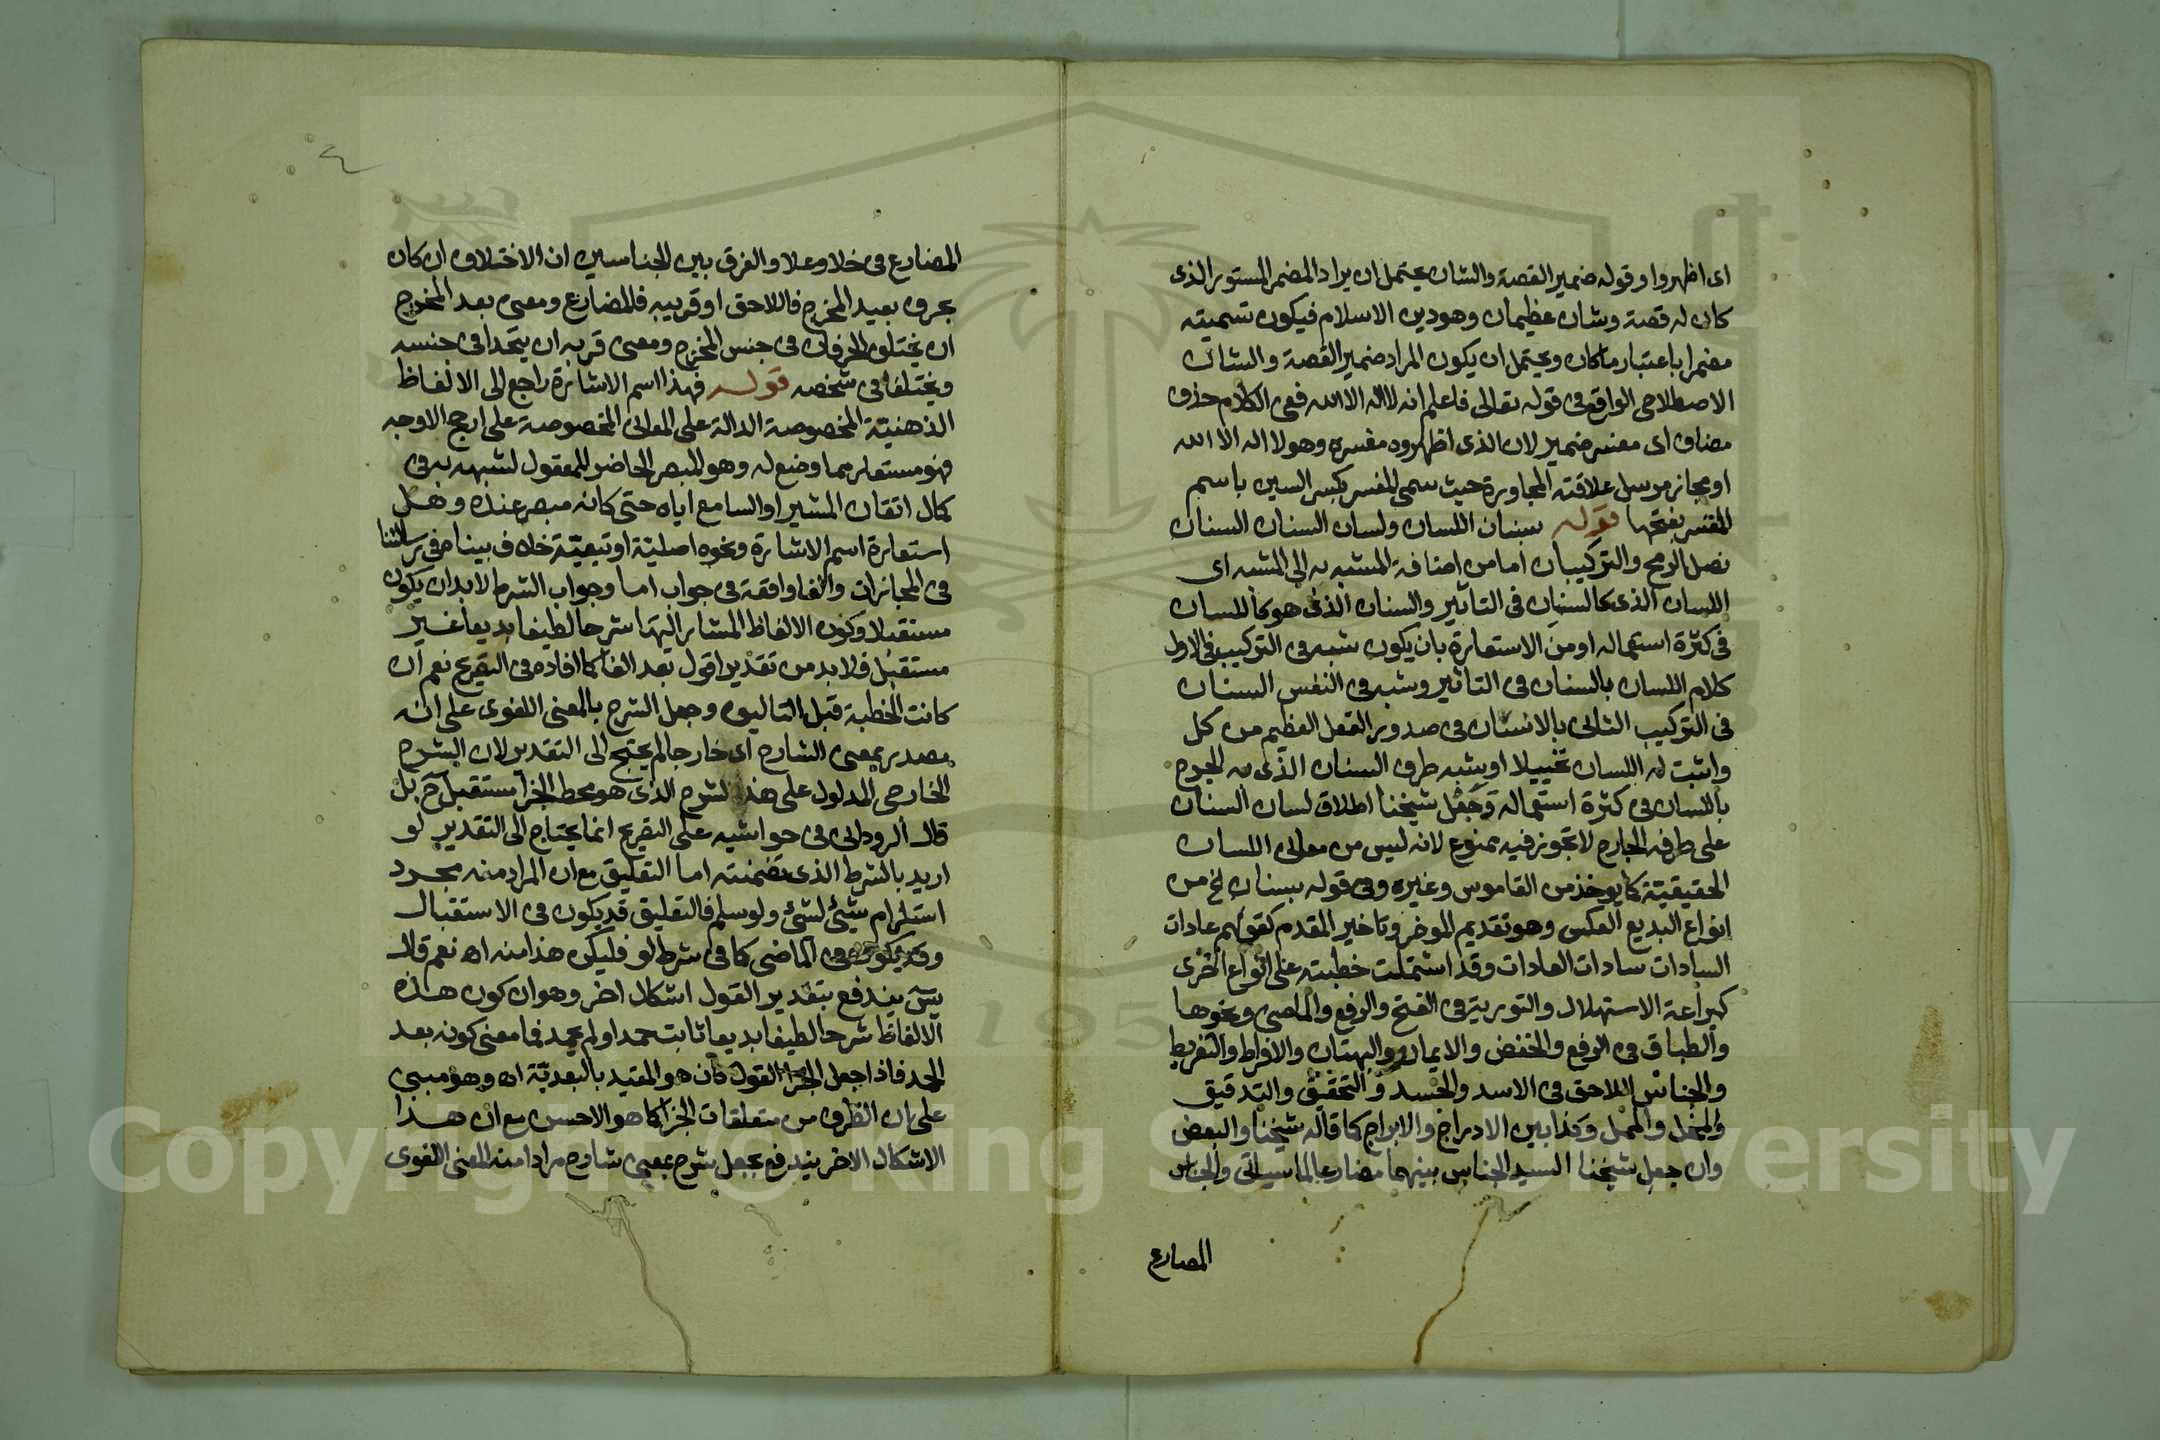 اى اظهروا وقوله ضمير القصة والشان يحتمل ان يراد المضمر المستور الذى
كان له قصة وشان عظيمان وهو دين الاسلام فيكون تسميته
مضمرا باعتبار ما كان ويحتمل ان يكون المراد ضمير القصة والشان
الاصطلاحى الواقع فى قوله تعالى فاعلم انه لا اله الا الله ففى الكلام حذف
مضاف اى مفسر ضمير لان الذى اظهروه مفسره وهو لا اله الا الله
او مجاز مرسل علاقته المجاورة حيث سمى المفسر بكسر السين باسم
المفسر بفتحها قوله بسنان اللسان ولسان السنان السنان
نصل الرمح والتركيبان اما من اضافة المشبه به الى المشبه اى
اللسان الذى كالسنان فى التاثير والسنان الذى هو كاللسان
فى كثرة استعماله او من الاستعارة بان يكون شبه فى التركيب فى الاول
كلام اللسان بالسنان فى التاثير وشبه فى النفس السنان
فى التركيب الثانى بالانسان فى صدور الفعل العظيم من كل
واثبت له اللسان تخييلا او يشبه طرف السنان الذى به الجرح
باللسان فى كثرة استعماله وجعل شيخنا اطلاق لسان السنان
على طرفه الجارح لا تجوز فيه ممنوع لانه ليس من معانى اللسان
الحقيقيّة كما يوخذ من القاموس وغيره وفى قوله بسنان الخ من
انواع البديع العكس وهو تقديم الموخر وتاخير المقدم كقولهم عادات
السادات سادات العادات وقد اشتملت خطبته على انواع اخرى
كبراعة الاستهلال والتورية فى الفتح والرفع والماضى ونحوها
والطباق فى الرفع والخفض والايمان والبهتان والافراط والتفريط
والجناس اللاحق فى الاسد والحسد والتحقيق والتدقيق
والمخل والممل وكذا بين الادراج والابراج كما قاله شيخنا والبعض
وان جعل شيخنا السيد الجناس بينهما مضارعا لما سياتى والجناس
المضارع
٤
المضارع فى خلا وعلا والفرق بين الجناسين ان الاختلاف ان كان
بحرف بعيد المخرج فاللاحق او قريبه فالمضارع ومعنى بعد المخرج
ان يختلف الحرفان فى جنس المخرج ومعنى قربه ان يتحدا فى جنسه
ويختلفا فى شخصه قوله فهذا اسم الاشارة راجع الى الالفاظ
الذهنيّة المخصوصة الدالة على المعانى المخصوصة على ارجح الاوجه
فهو مستعار مما وضع له وهو المبصر الحاضر للمعقول لشبهه به فى
كمال اتقان المشير او السامع اياه حتى كانه مبصر عنده وهل
استعارة اسم الاشارة ونحوه اصليّة او تبعيّة خلاف بيناه فى رسالتنا
فى المجازات والفا واقعة فى جواب اما وجواب الشرط لابد ان يكون
مستقبلا وكون الالفاظ المشار اليها شرحا لطيفا بديعا غير
مستقبل فلابد من تقدير اقول بعد الفا كما افاده فى التفريع نعم ان
كانت الخطبة قبل التاليف وجعل الشرح بالمعنى اللغوى على انه
مصدر بمعنى الشارح اى خارجا لم يحتج الى التقدير لان الشرح
الخارجى المدلول على هذا لشرح الذى هو محط الجزا مستقبل ح بل
قال الرودانى فى حواشيه على التفريع انما يحتاج الى التقدير لو
اريد بالشرط الذى تضمنته اما التعليق مع ان المراد منه مجرد
استلزام شيئ لشئ ولو سلم فالتعليق قد يكون فى الاستقبال
وقد يكون فى الماضى كما فى شرط لو فليكن هذا منه اه نعم قال
يس يندفع بتقدير القول اشكال اخر وهو ان كون هذه
الالفاظ شرحا لطيفا بديعا ثابت حمد او لم يحمد فما معنى كونه بعد
الحمد فاذا جعل الجزا القول كان هو المقيد بالبعديّة اه وهو مبنى
على ان الظرف من متعلقات الجزا كما هو الاحسن مع ان هذا
الاشكال الاخر يندفع بجعل شرح بمعنى شارح مرادا منه المعنى اللغوى
Copyright © King Saud University
195